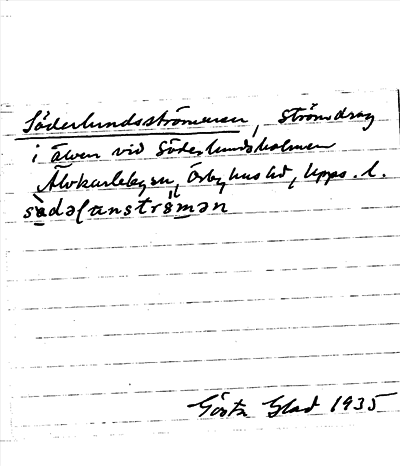 Söderlundsströmmen, strömdrag
i älven vid Söderlundsholmen
Älvkarleby sn, Örbyhus hd, Upps. l.
Gösta Glad 1935